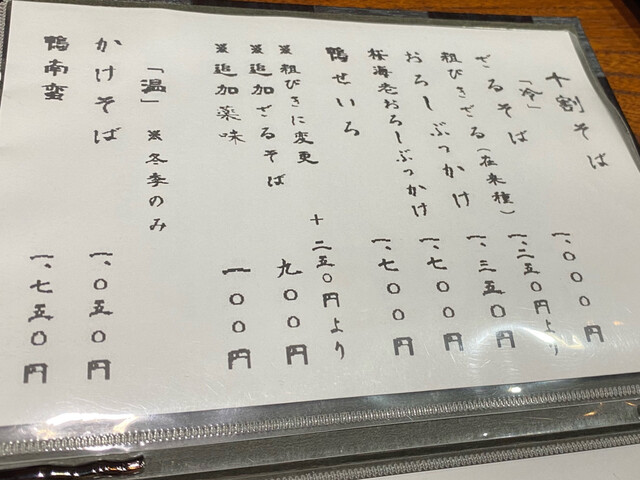 十割そば
「冷」
ざるそば 一、〇〇〇円
粗びきざる(在来種) 一、二五〇円より
おろしぶっかけ 一、三五〇円
桜海老おろしぶっかけ 一、七〇〇円
鴨せいろ 一、七〇〇円
※粗びきに変更 +二五〇円より
※追加ざるそば 九〇〇円
※追加薬味 一〇〇円
「温」※冬季のみ
かけそば 一、〇五〇円
鴨南蛮 一、七五〇円